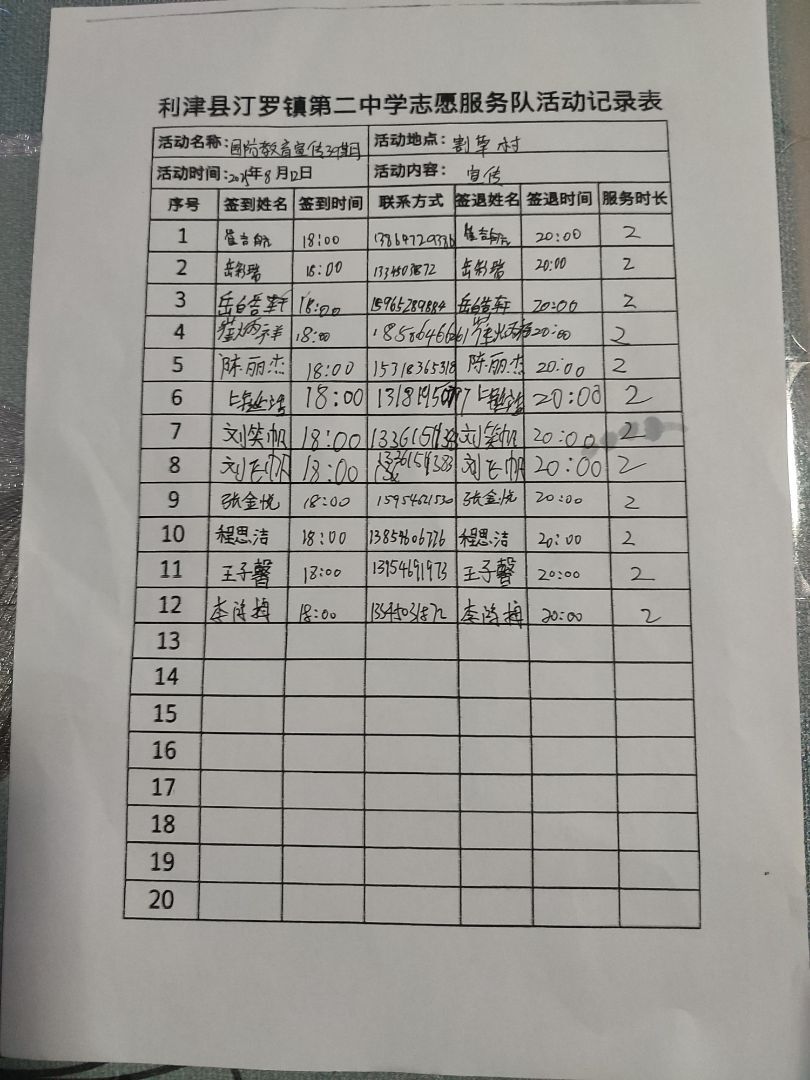 利津县汀罗镇第二中学志愿服务队活动记录表
活动名称:国防教育宣传 活动地点: 割草村
活动时间:2025年8月12日 活动内容: 宣传
序号 签到姓名 签到时间 联系方式 签退姓名 签退时间 服务时长
1 18:00 20:00 2
2 岳彩瑞 18:00 岳彩瑞 20:00 2
3 18:00 15965289884 20:00 2
4 18:00 20:00 2
5 陈丽杰 18:00 15318365318 陈丽杰 20:00 2
6 18:00 20:00 2
7 刘笑帆 18:00 刘笑帆 20:00 2
8 刘飞帆 18:00 刘飞帆 20:00 2
9 张金悦 18:00 15954621530 张金悦 20:00 2
10 程思洁 18:00 13854606776 程思洁 20:00 2
11 王子馨 18:00 13954691973 王子馨 20:00 2
12 18:00 20:00 2
13
14
15
16
17
18
19
20